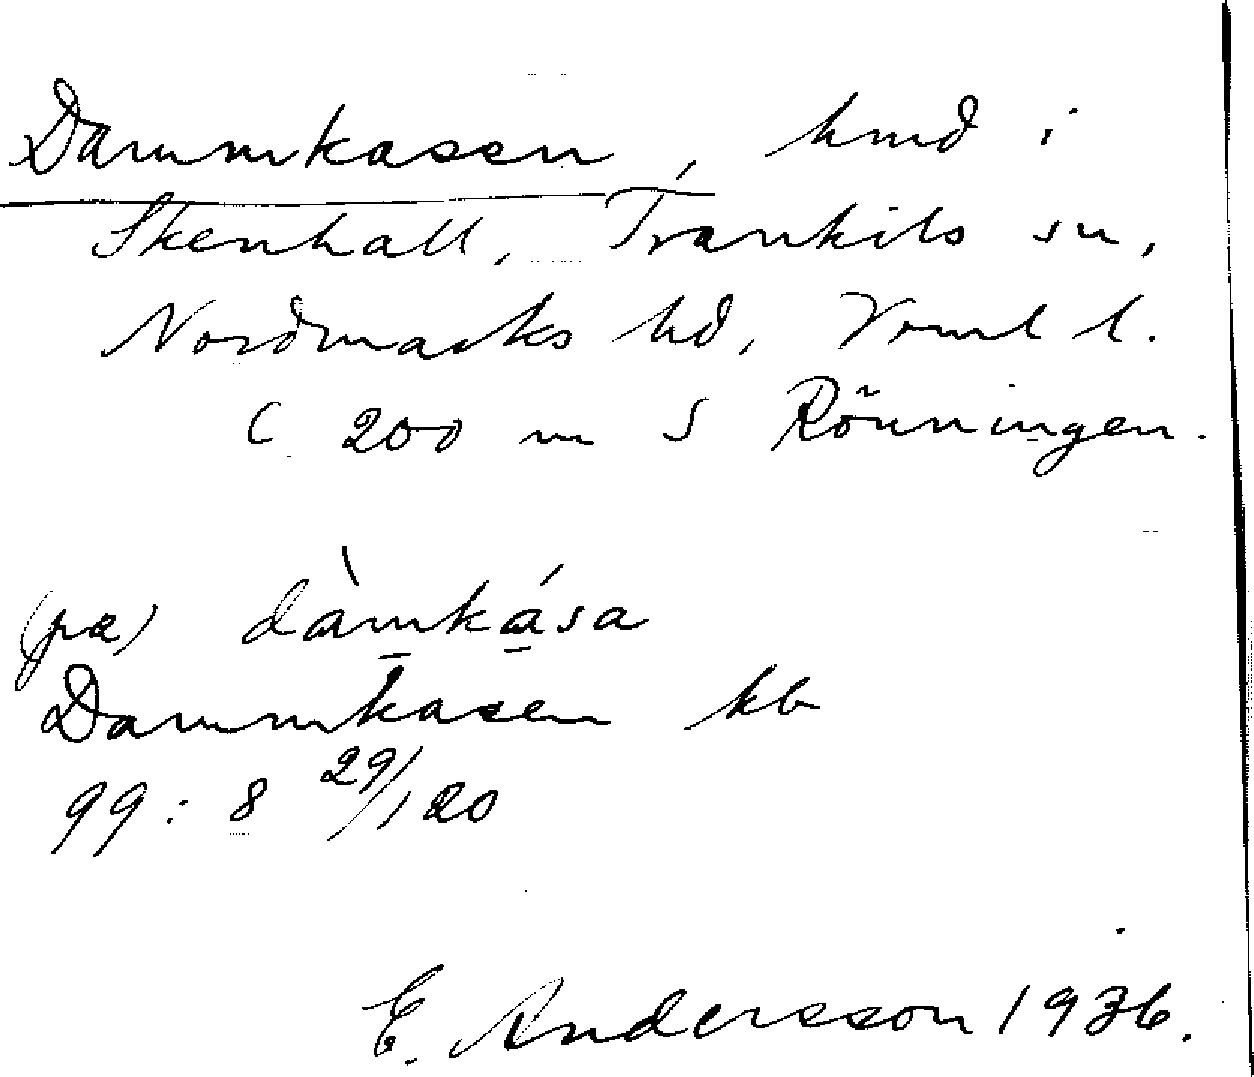 Dammkasen, hmd i
Skenhall, Trankils sn,
Nordmarks hd, Vrml l.
C 200 m S Rönningen.
(pa) dàmkása
Dammkasen kb
99:8 29/120
E. Andersson 1936.